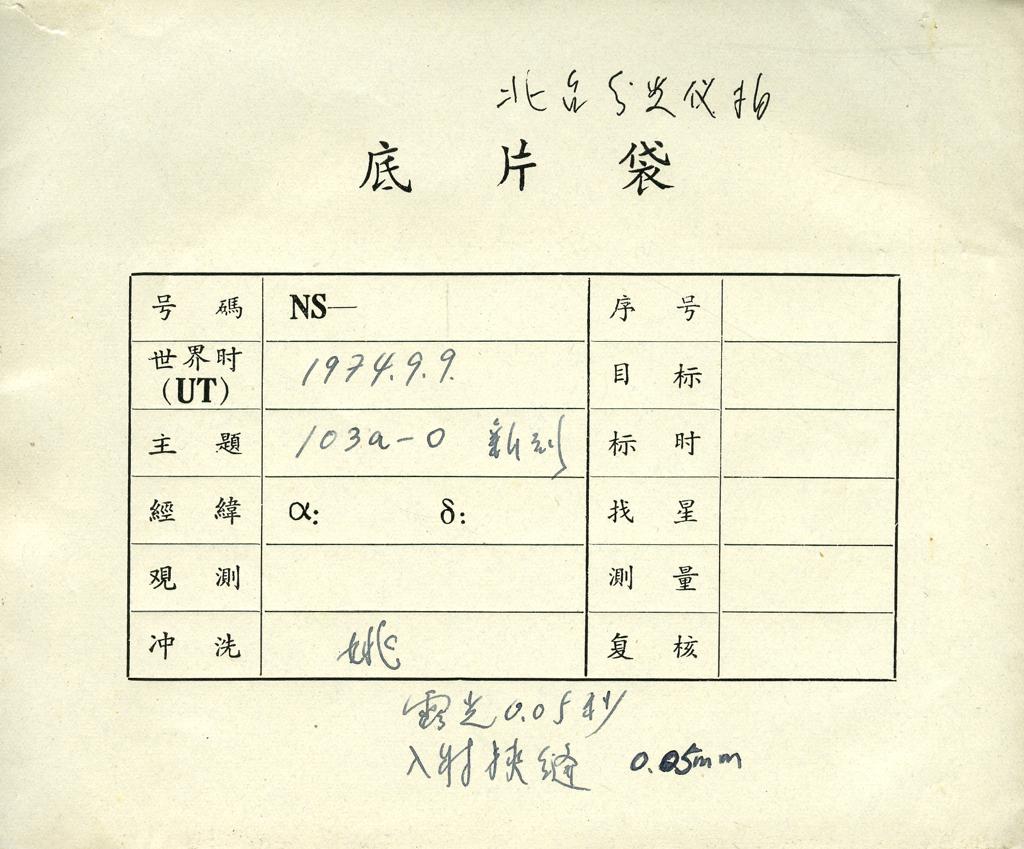 北台分光仪拍
底片袋
号碼 NS— 序号
世界时(UT) 1974.9.9. 目标
主題 103a-O 新到 标时
經緯 α: δ: 找星
观測 測量
冲洗 姚 复核
露光0.05秒
入射狭缝 0.05mm